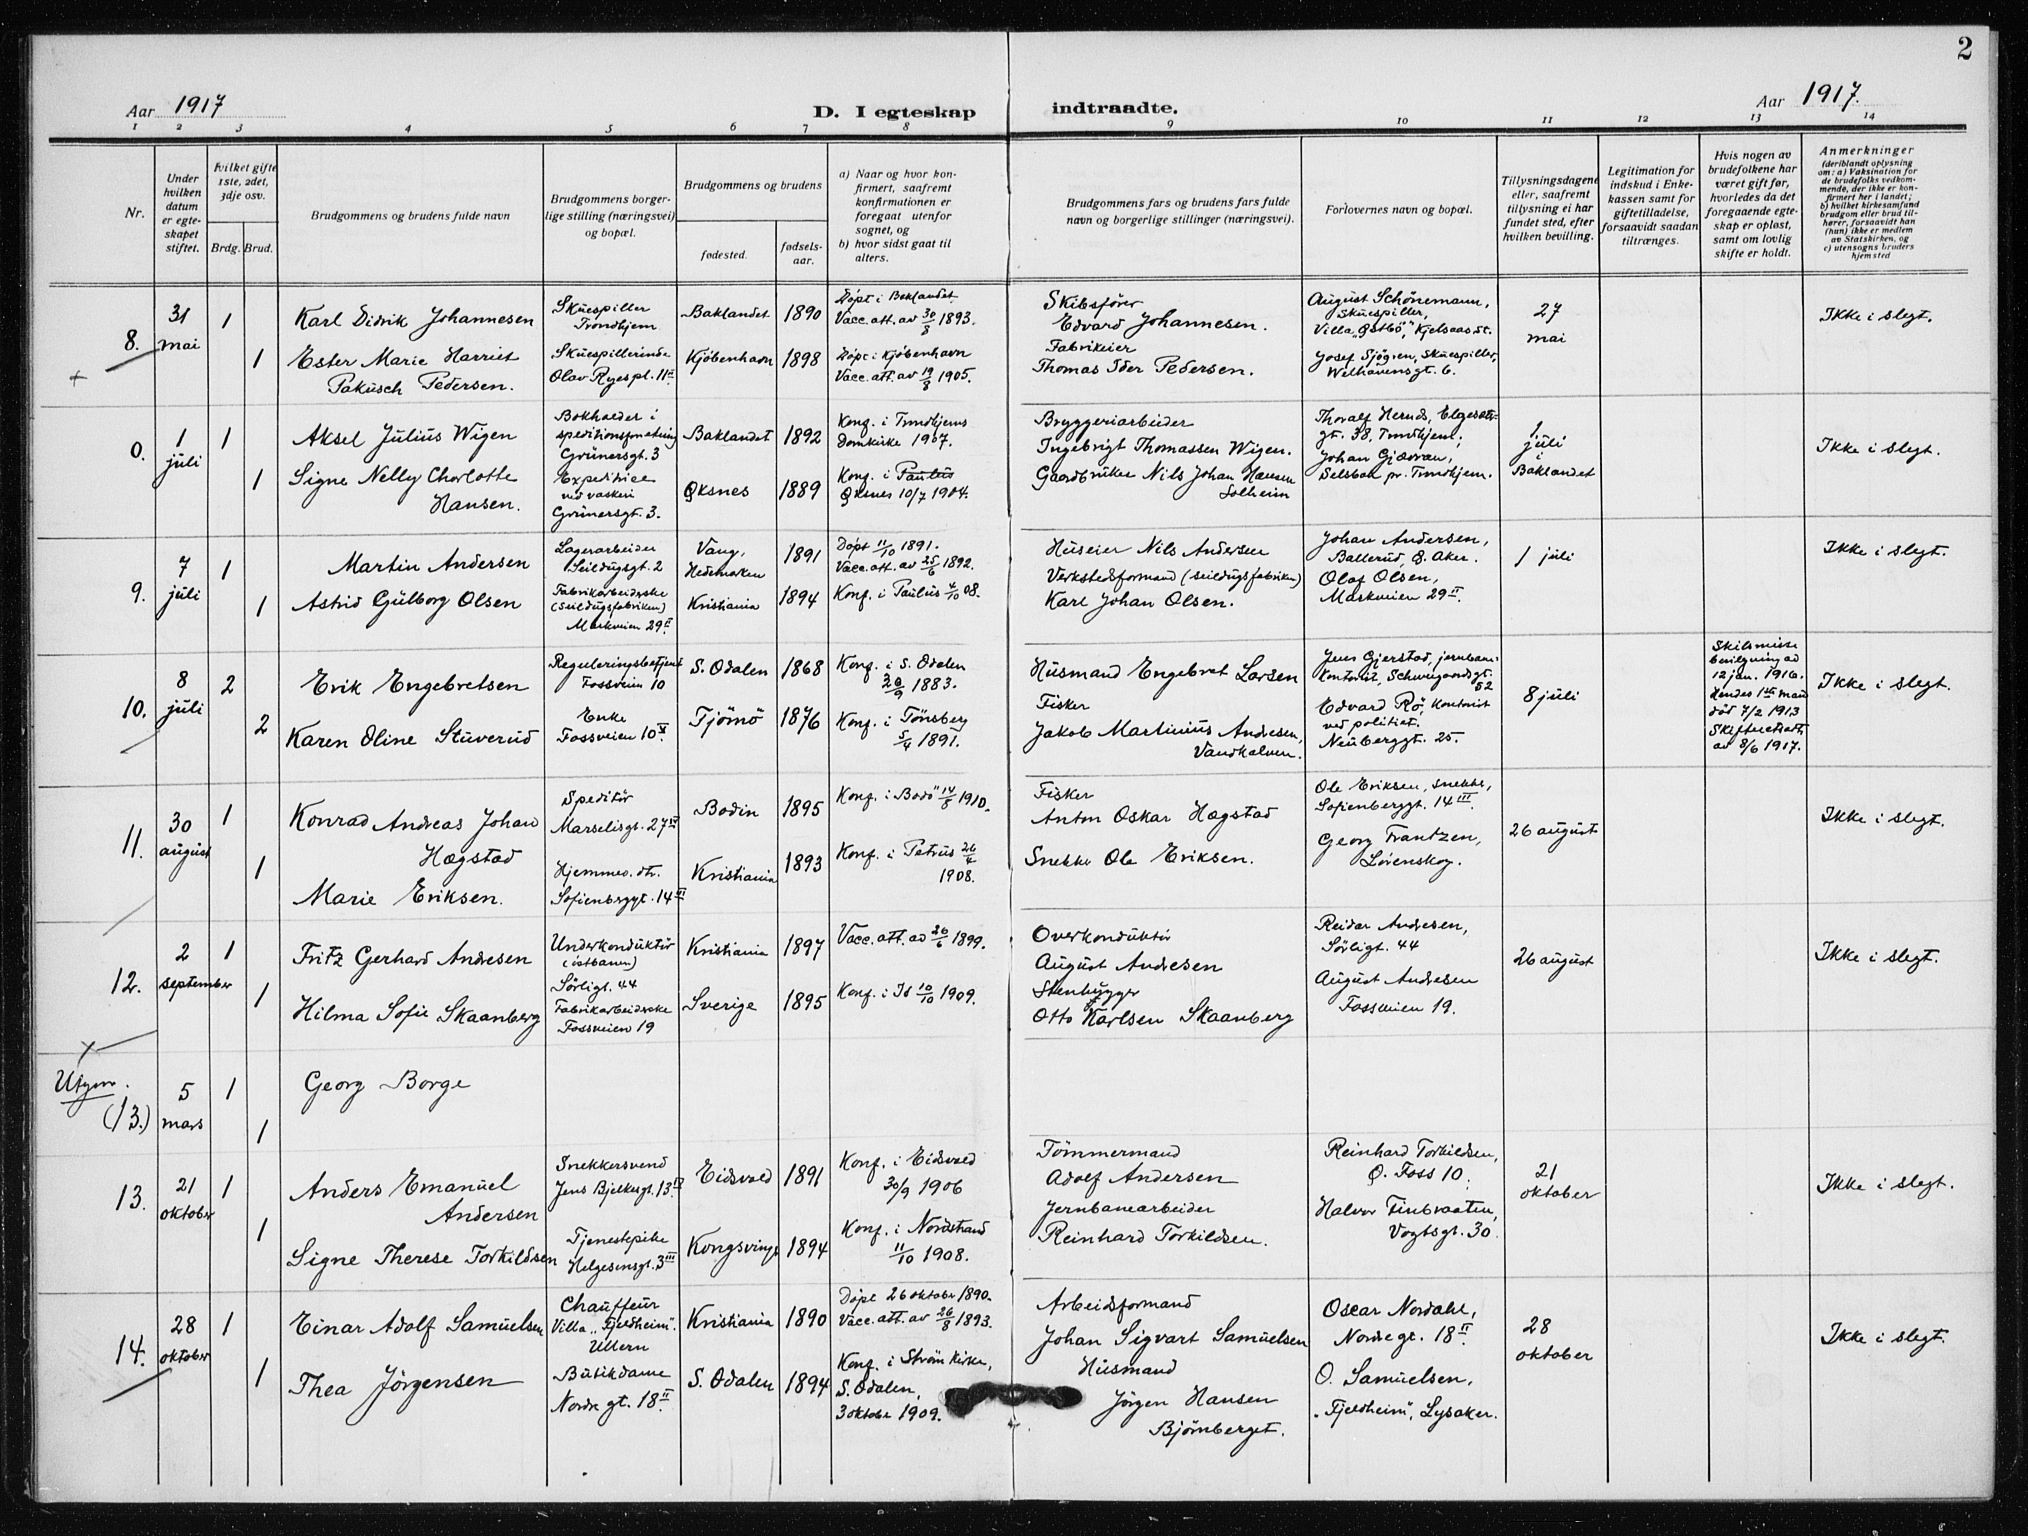 2
Aar 1917
D. I egteskap indtraadte.
Aar 1917.
1 2 3 4 5 6 7 8 9 10 11 12 13 14
Nr.
Under hvilken datum er egteskapet stiftet.
Hvilket gifte 1ste, 2det, 3dje osv.
Brdg. Brud.
Brudgommens og brudens fulde navn
Brudgommens borgerlige stilling (næringsvei) og bopæl.
Brudgommens og brudens
fødested.
fødselsaar.
a) Naar og hvor konfirmert, saafremt konfirmationen er foregaat utenfor sognet, og
b) hvor sidst gaat til alters.
Brudgommens fars og brudens fars fulde navn og borgerlige stillinger (næringsvei).
Forlovernes navn og bopæl.
Tillysningsdagene eller, saafremt tillysning ei har fundet sted, efter hvilken bevilling.
Legitimation for indskud i Enkekassen samt for giftetilladelse, forsaavidt saadan tiltrænges.
Hvis nogen av brudefolkene har været gift før, hvorledes da det foregaaende egteskap er opløst, samt om lovlig skifte er holdt.
Anmerkninger
(deriblandt oplysning om: a) Vaksination for de brudefolks vedkommende, der ikke er konfirmert her i landet; b) hvilket kirkesamfund brudgom eller brud tilhører, forsaavidt han (hun) ikke er medlem av Statskirken, og c) utensogns bruders hjemsted
8.
31 mai
1
Karl Didrik Johannesen
Skuespiller
Trondhjem
Baklandet
1890
Döpt i Baklandet
Vacc. att. av 30/8 1893.
Skibsförer
Edvard Johannesen.
August Schönemann,
Skuespiller,
Villa "Östbö", Kjelsaas st.
27 mai
Ikke i slegt.
1
Ester Marie Harriet
Pakusch Pedersen.
Skuespillerinde
Olav Ryespl. 11 II
Kjöbenhavn
1898
Döpt i Kjöbenhavn
Vacc. att. av 19/8 1905.
Fabrikeier
Thomas Pedersen.
Josef Sjögren, Skuespiller,
Welhavensgt. 6.
0.
1 juli
1
Aksel Julius Wigen
Bokholder i
Grünersgt. 3
Baklandet
1892
Konf. i Trondhjems
Domkirke 1907.
Bryggeriarbeider
Ingebrigt Thomassen Wigen.
Thoralf
gt. 38, Trondhjem;
Johan Gjædvan,
Selsbak pr. Trondhjem.
1 juli i Baklandet
Ikke i slegt.
1
Signe Nelly Charlotte
Hansen.
Expeditrice
ved vaskeri
Grünersgt. 3.
Öksnes
1889
Konf. i Paulus
Öksnes 10/7 1904.
Gaardbruker Nils Johan Hansen
Solheim
9.
7 juli
1
Martin Andersen
Lagerarbeider
Seildugsgt. 2
Vang,
Hedemarken
1891
Döpt 11/10 1891.
Vacc. att. av 25/6 1892.
Huseier Nils Andersen
Johan Andersen,
Ballerud, Ö. Aker.
1 juli
Ikke i slegt.
1
Astrid Gulborg Olsen
Fabrikarbeiderske
(Seildugsfabriken)
Markveien 29 II
Kristiania
1894
Konf. i Paulus 4/10 08.
Verkstedsformand (seildugsfabriken)
Karl Johan Olsen.
Olaf Olsen,
Markveien 29 II.
10.
8 juli
2
Erik Engebretsen
Reguleringsbetjent
Fossveien 10
S. Odalen
1868
Konf. i S. Odalen
1883.
Husmand Engebret Larsen
Jens Gjerstad, jernbane-
kontorist, Schweigaardsgt.
52
8 juli
Skilsmisse
bevilgning av
12 jan. 1916.
Hendes 1ste mand
död 7/2 1913
Skifteattest
av 8/6 1917.
Ikke i slegt.
2
Karen Oline Stuverud
Enke
Fossveien 10
Tjömö
1876
Konf. i Tönsberg
5/4 1891.
Fisker
Jakob Martinius Andresen,
Vandkalven.
Edvard Rö, kontorist
ved politiet.
Neuberggt. 25.
11.
30 august
1
Konrad Andreas Johan
Hægstad
Speditör
Marselisgt. 27
Bodin
1895
Konf. i Bodö 14/8 1910.
Fisker
Anton Oskar Hægstad
Ole Eriksen, snekker,
Sofienberggt. 14 III.
26 august
Ikke i slegt.
1
Marie Eriksen.
Hjemmev. dtr.
Sofienbrggt. 14 III
Kristiania
1893
Konf. i Petrus 26/4
1908.
Snekker Ole Eriksen.
Georg Frantzen,
Lörenskog.
12.
2 september
1
Fritz Gerhard Andresen
Underkonduktör
(östbanen)
Sörligt. 44
Kristiania
1897
Vacc. att. av 26/6 1899.
Overkonduktör
August Andresen
Reidar Andresen,
Sörligt. 44
26 august
Ikke i slegt.
1
Hilma Sofie Skaanberg
Fabrikarbeiderske
Fossveien 19
Sverige
1895
Konf. i Js 10/10 1909.
Stenhugger
Otto Karlsen Skaanberg
August Andresen
Fossveien 19.
Utgaar.
(13.)
5 mars
1
Georg Borge
1
13.
21 oktober
1
Anders Emanuel
Andersen
Snekkersvend
Jens Bjelkesgt. 13 IV
Eidsvold
1891
Konf. i Eidsvold
30/9 1906
Tömmermand
Adolf Andersen
Reinhard Torkildsen,
Ö. Foss 10.
21 oktober
Ikke i slegt.
1
Signe Therese Torkildsen
Tjenestepike
Helgesensgt. 3 III
Kongsvinger
1894
Konf. i Nordstrand
11/10 1908.
Jernbanearbeider
Reinhard Torkildsen.
Halvor Finbraaten,
Vogtsgt. 30.
14.
28 oktober
1
Einar Adolf Samuelsen
Chauffeur
Villa "Fjeldheim".
Ullern
Kristiania
1890
Döpt 26 oktober 1890.
Vacc. att. av 26/8 1893.
Arbeidsformand
Johan Sigvart Samuelsen
Oscar Nordahl,
Nordregt. 18 II
28 oktober
Ikke i slegt.
1
Thea Jörgensen
Butikdame
Nordre gt. 18 II
S. Odalen
1894
Konf. i Ström kirke,
S. Odalen,
3 oktober 1909.
Husmand
Jörgen Hansen
Björnberget.
O. Samuelsen,
"Fjeldheim", Lysaker.